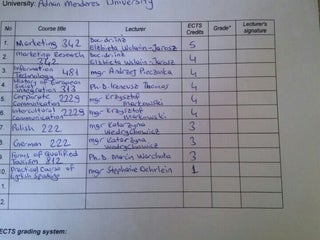 University: Adnan Menderes University
No Course title Lecturer ECTS Credits Grade* Lecturer's signature
1. Marketing 342 Doc. dr. inz Elżbieta Wolain-Jarosz 5
2. Marketing Research 242 Doc. dr. inz Elżbieta Wolain-Jarosz 4
3. Information Technology 481 mgr Andrzej Pieczonka 4
4. History of European Social Integration 313 Ph.D. Ireneusz Thomas 4
5. Corporate Communication 2229 mgr Krzysztof Markowski 4
6. Intercultural Communication 2229 mgr Krzysztof Markowski 4
7. Polish 222 mgr Katarzyna Wodrychowicz 3
8. German 222 mgr Katarzyna Wodrychowicz 3
9. Forms of Qualified Tourism 812 Ph.D. Marcin Warchata 3
10. Practical Course of mgr Stephanie Oehrlein 1
1.
2.
ECTS grading system: